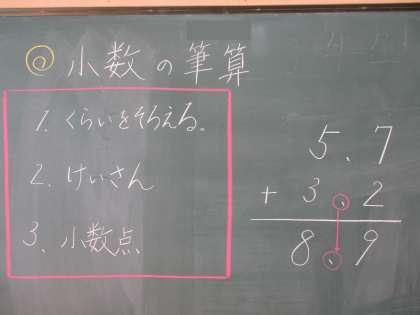 ◎ 小数の筆算
1. くらいをそろえる。
2. けいさん
3. 小数点
5.7
+ 3.2
8.9